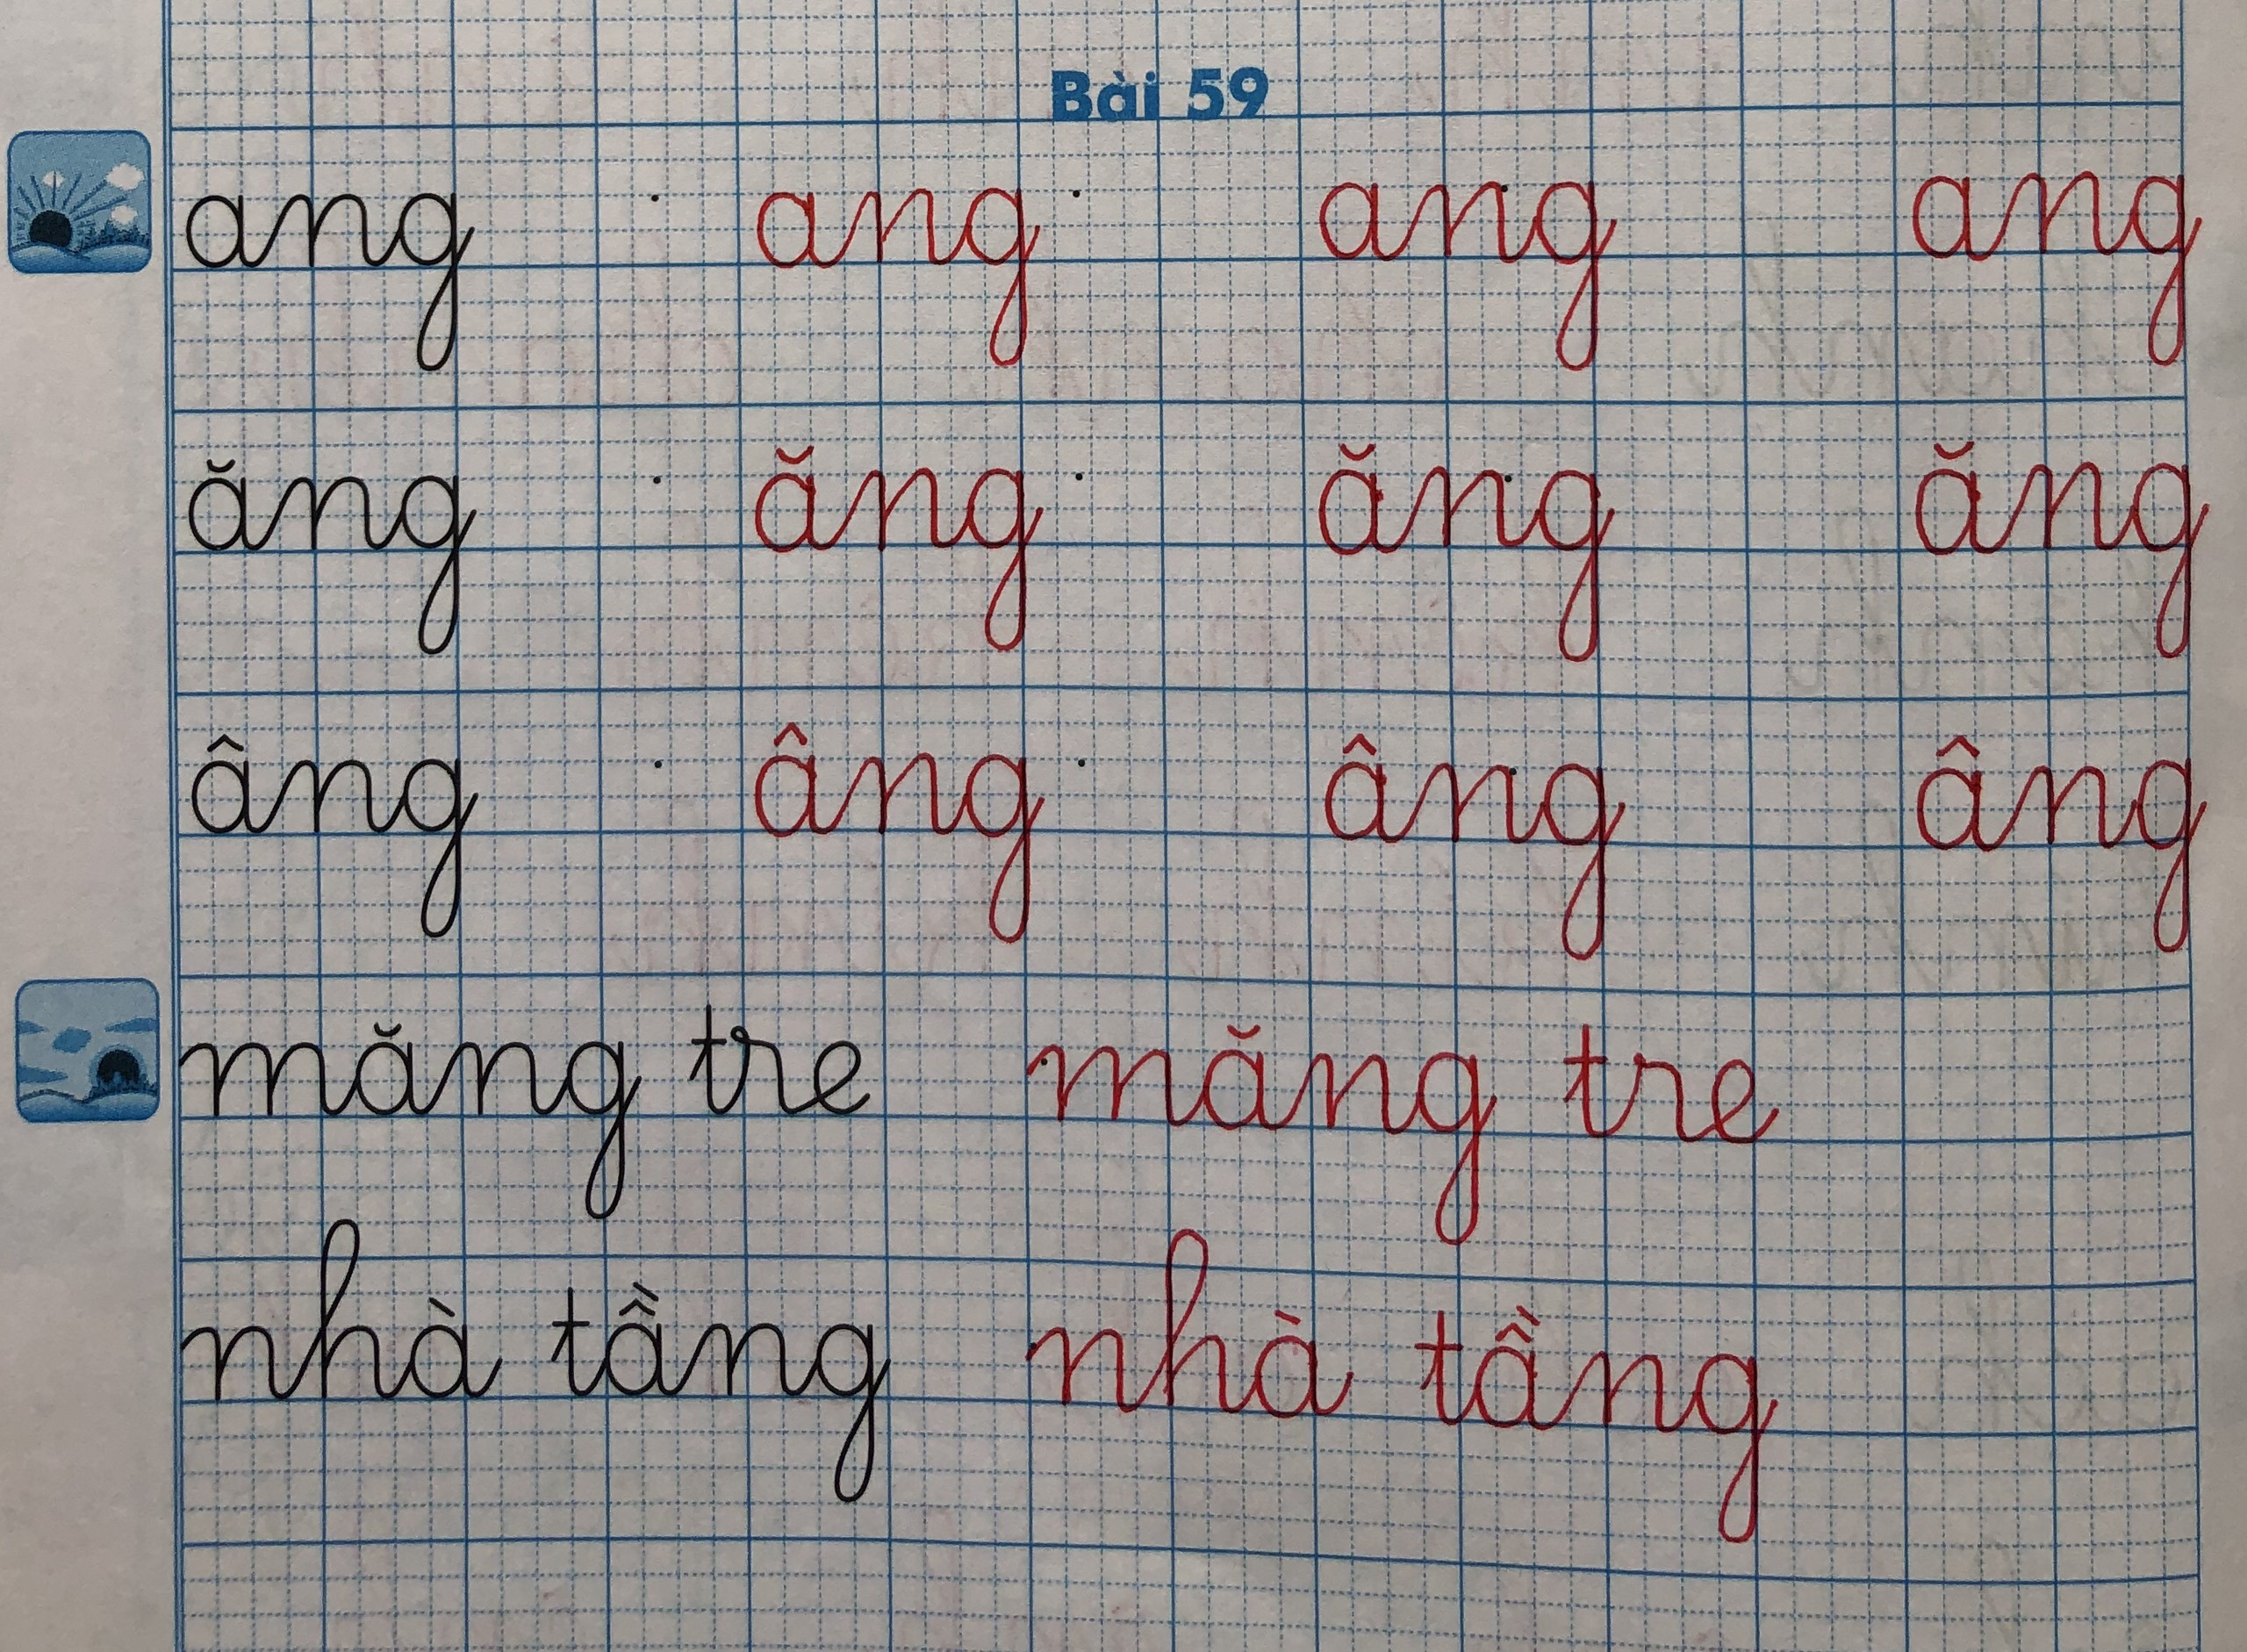 Bài 59
ang ang ang ang
ăng ăng ăng ăng
âng âng âng âng
măng tre măng tre
nhà tầng nhà tầng